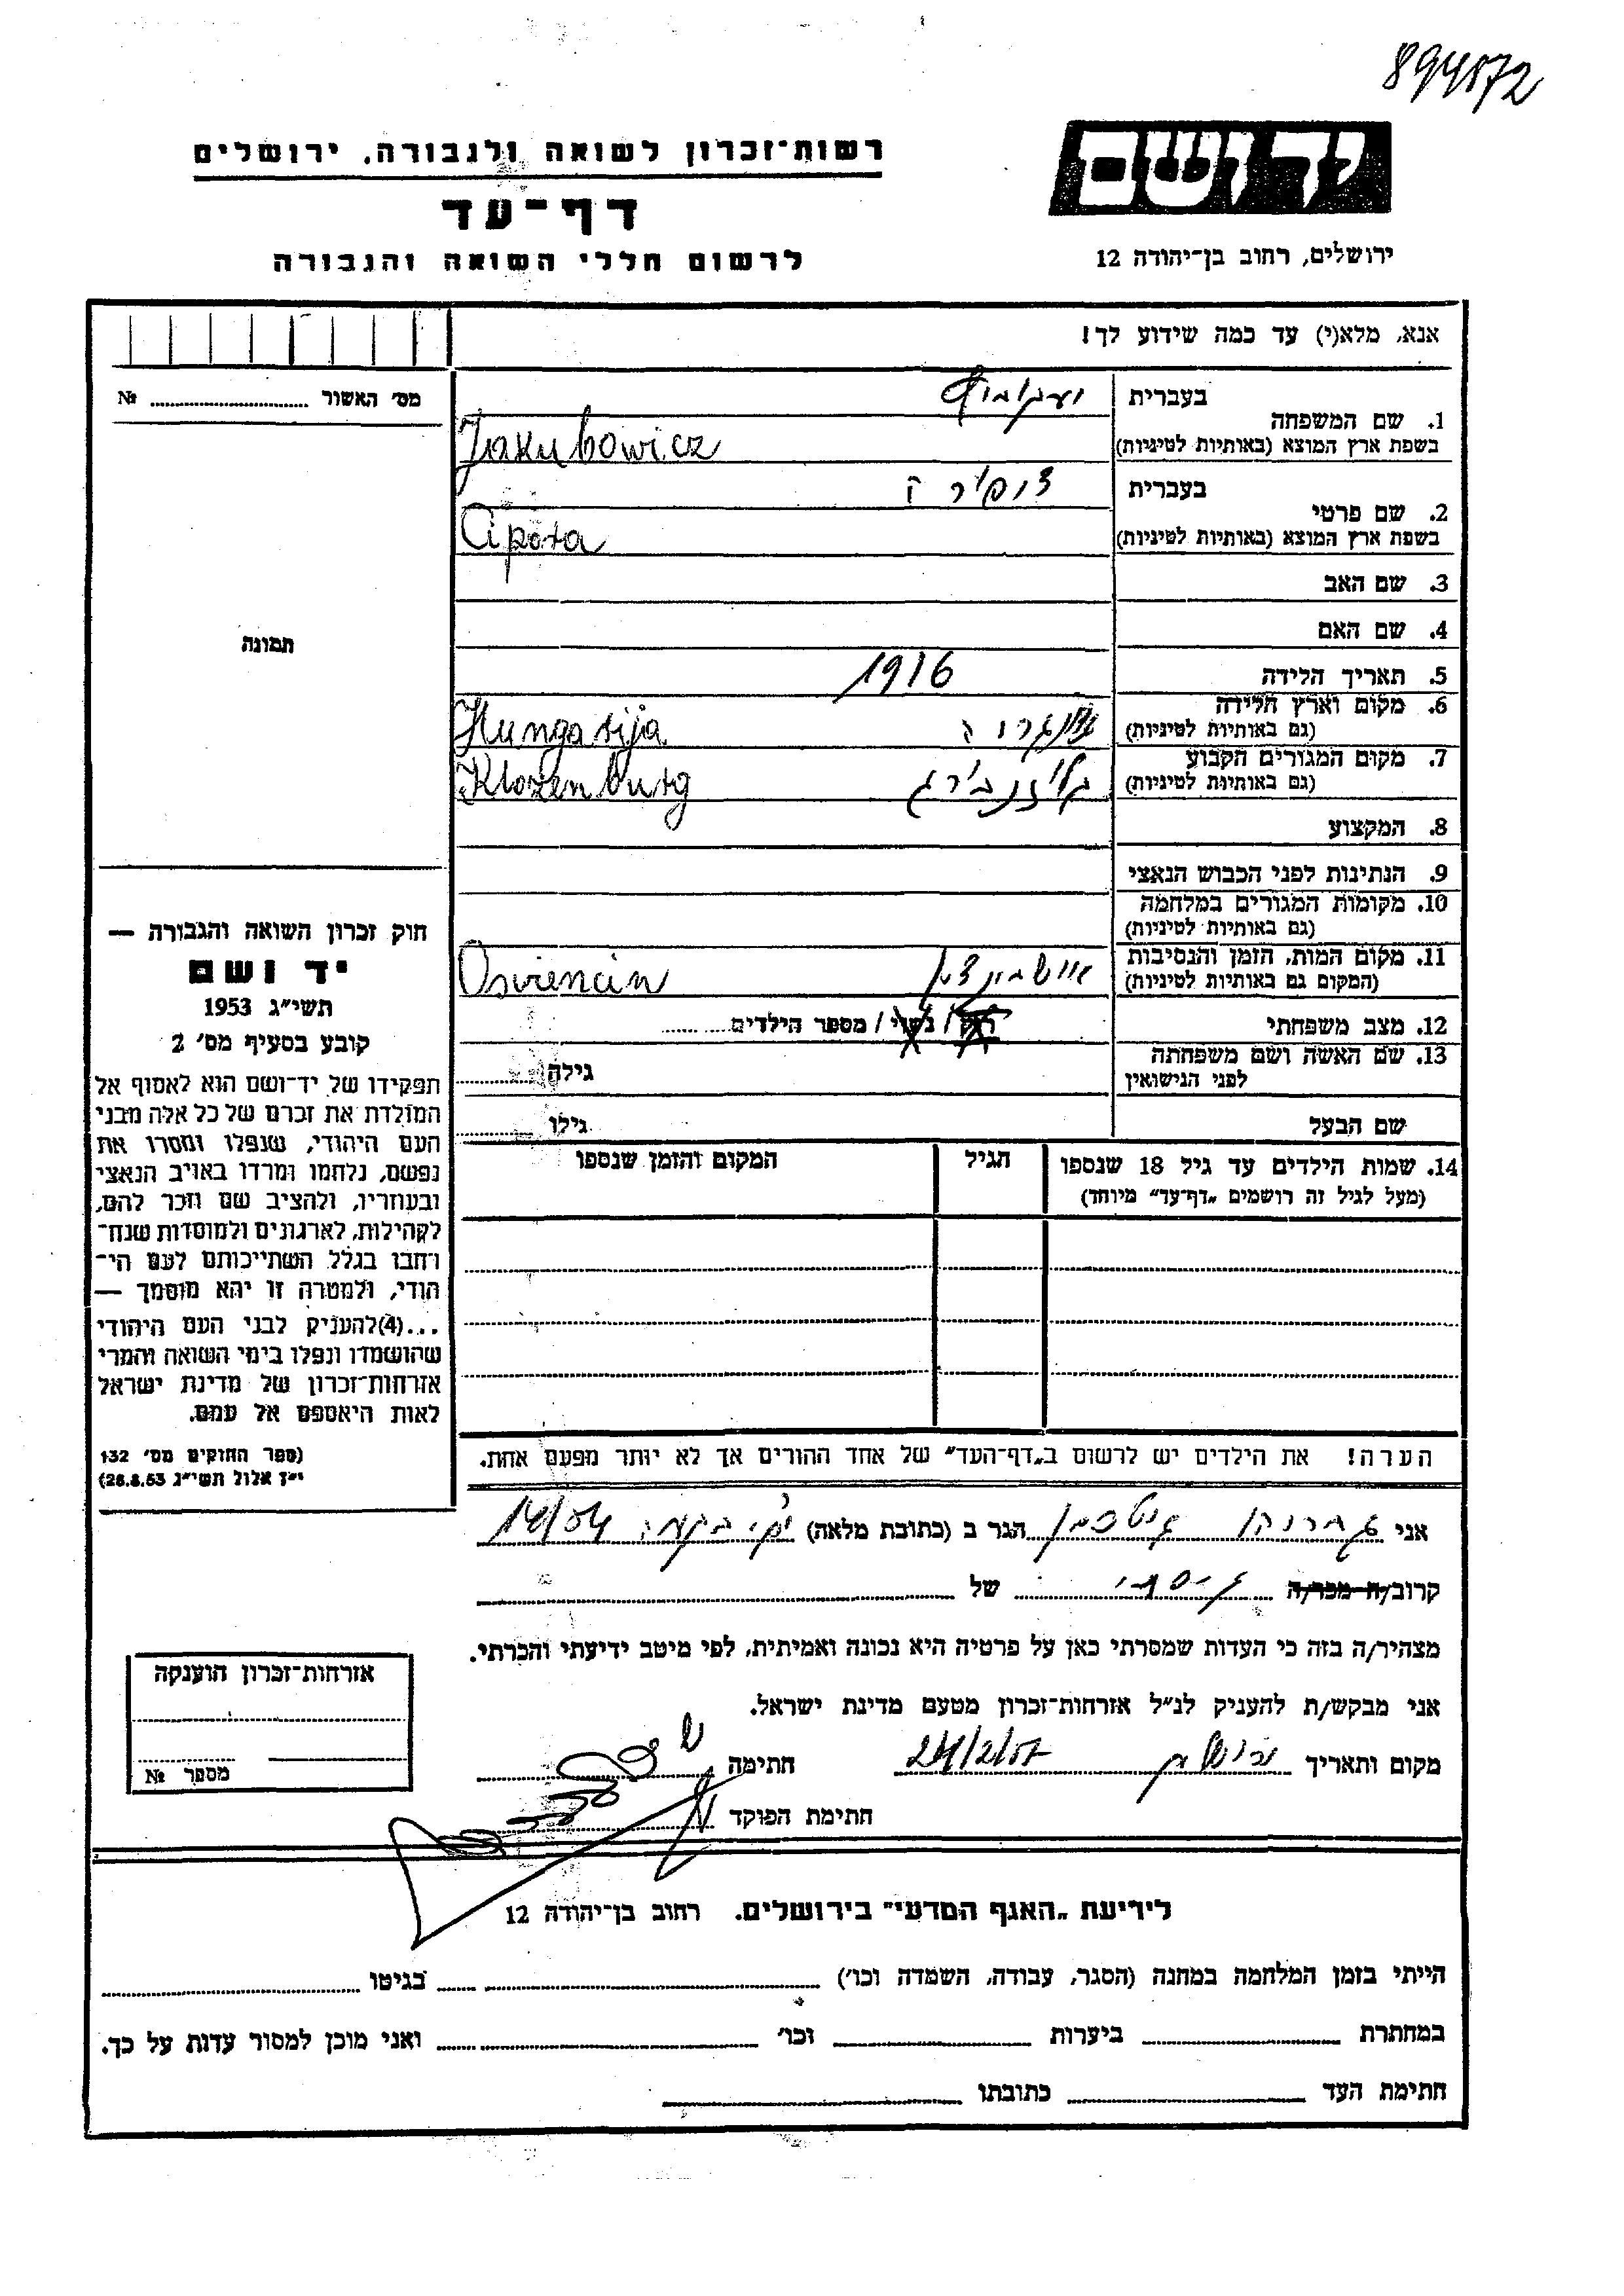 894572
ידושם
רשות־זכרון לשואה ולגבורה, ירושלים
דף־עד
לרשום חללי השואה והגבורה
ירושלים, רחוב בן־יהודה 12
אנא, מלא(י) עד כמה שידוע לך!
מס׳ האשור № ....................
1. שם המשפחה
בעברית
בשפת ארץ המוצא (באותיות לטיניות)
Jakubowicz
2. שם פרטי
בעברית
בשפת ארץ המוצא (באותיות לטיניות)
3. שם האב
4. שם האם
5. תאריך הלידה
1916
6. מקום וארץ הלידה
(גם באותיות לטיניות)
Hungarija
7. מקום המגורים הקבוע
(גם באותיות לטיניות)
Klozenburg
8. המקצוע
9. הנתינות לפני הכבוש הנאצי
10. מקומות המגורים במלחמה
(גם באותיות לטיניות)
11. מקום המות, הזמן והנסיבות
(המקום גם באותיות לטיניות)
Osviencin
12. מצב משפחתי
רוק / נשוי / מספר הילדים ........
13. שם האשה ושם משפחתה
לפני הנישואין
גילה ........
שם הבעל
גילו ........
14. שמות הילדים עד גיל 18 שנספו
(מעל לגיל זה רושמים „דף־עד״ מיוחד)
הגיל
המקום והזמן שנספו
הערה! את הילדים יש לרשום ב„דף־העד״ של אחד ההורים אך לא יותר מפעם אחת.
תמונה
חוק זכרון השואה והגבורה —
יד ושם
תשי״ג 1953
קובע בסעיף מס׳ 2
תפקידו של יד־ושם הוא לאסוף אל
המולדת את זכרם של כל אלה מבני
העם היהודי, שנפלו ומסרו את
נפשם, נלחמו ומרדו באויב הנאצי
ובעוזריו, ולהציב שם וזכר להם,
לקהילות, לארגונים ולמוסדות שנח־
רבו בגלל השתייכותם לעם הי־
הודי, ולמטרה זו יהא מוסמך —
...(4) להעניק לבני העם היהודי
שהושמדו ונפלו בימי השואה והמרי
אזרחות־זכרון של מדינת ישראל
לאות היאספם אל עמם.
(ספר החוקים מס׳ 132
י״ז אלול תשי״ג 28.8.53)
אני .................... הגר ב (כתובת מלאה) ....................
קרוב/ה מכר/ה .................... של ....................
מצהיר/ה בזה כי העדות שמסרתי כאן על פרטיה היא נכונה ואמיתית, לפי מיטב ידיעתי והכרתי.
אני מבקש/ת להעניק לנ״ל אזרחות־זכרון מטעם מדינת ישראל.
מקום ותאריך ירושלים 24/2/57 חתימה
חתימת הפוקד
אזרחות־זכרון הוענקה
מספר №
לידיעת „האגף המדעי״ בירושלים. רחוב בן־יהודה 12
הייתי בזמן המלחמה במחנה (הסגר, עבודה, השמדה וכו׳) .................... בגיטו ....................
במחתרת .................... ביערות .................... וכו׳ .................... ואני מוכן למסור עדות על כך.
חתימת העד .................... כתובתו ....................